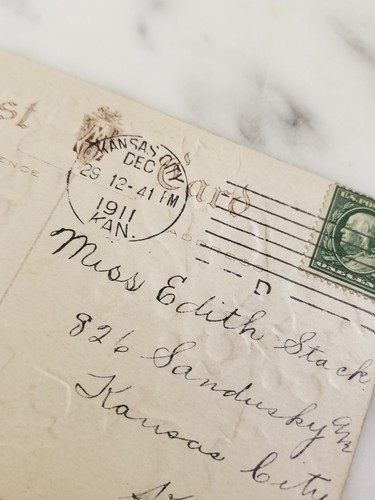 st Card
ENCE
ADDRESS
KANSAS CITY
DEC
29 12-41 PM
1911
KAN.
D
Miss Edith Stack
826 Sandusky Ave
Kansas City